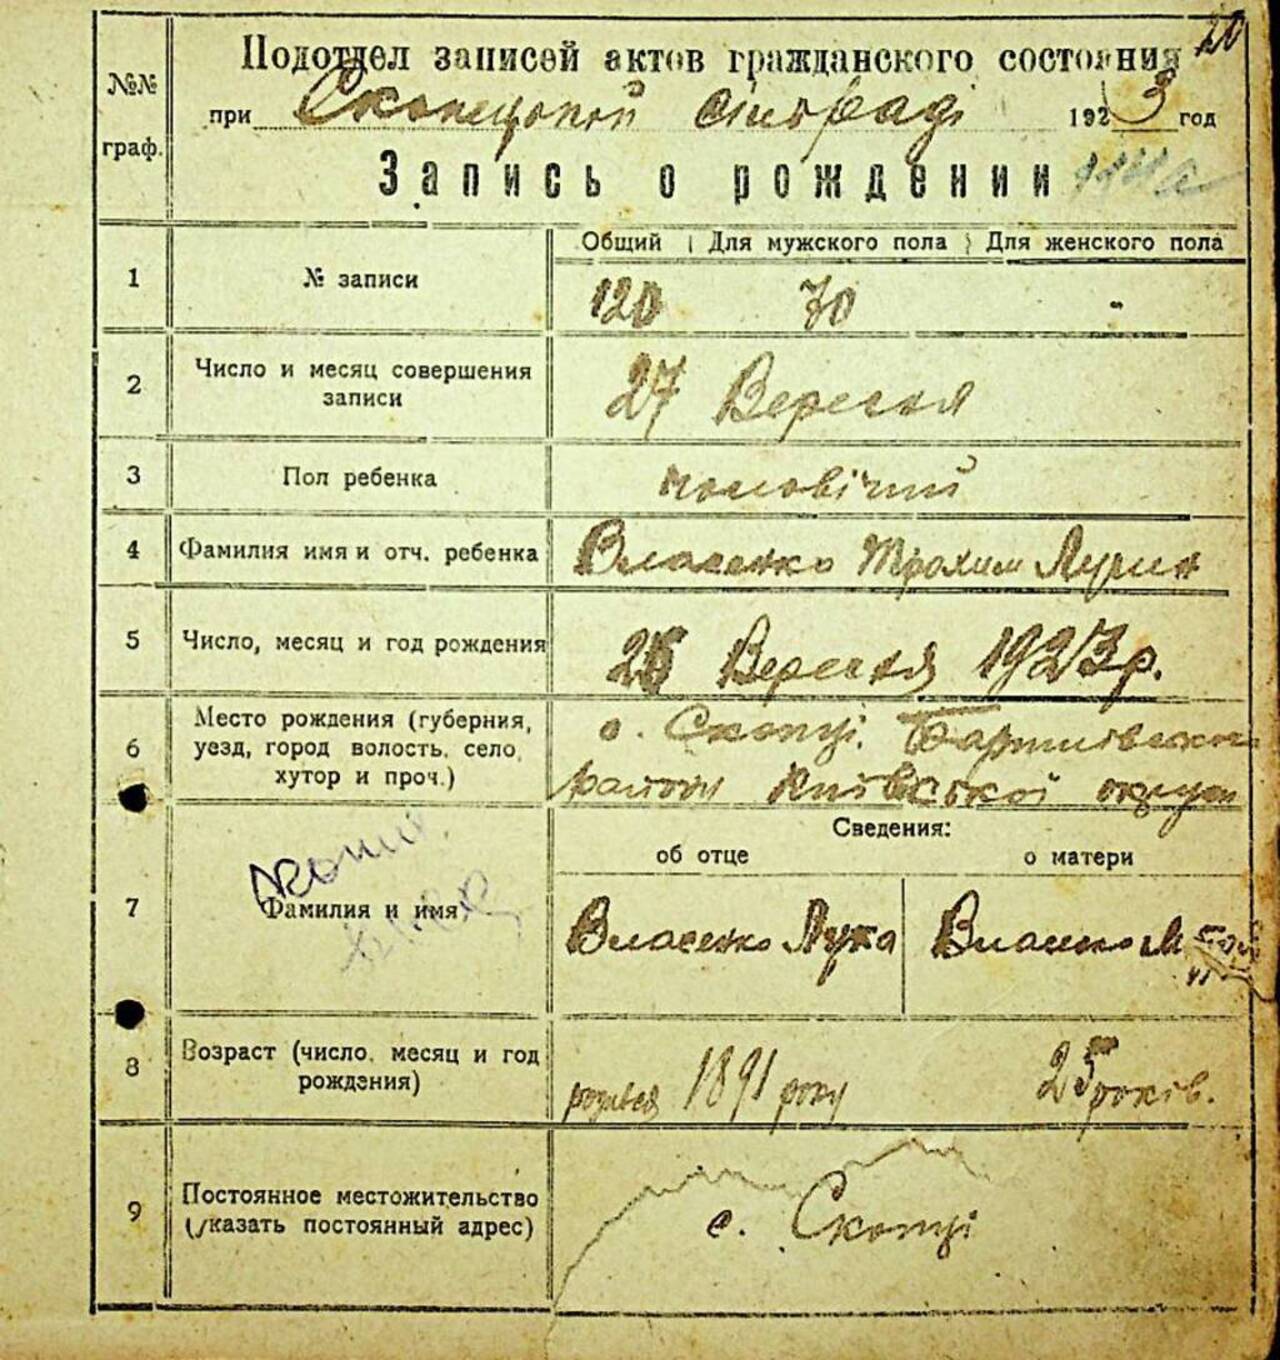 20
Подотдел записей актов гражданского состояния
№№ граф.
при Скопецькій сільраді 1923 год
Запись о рождении
Общий Для мужского пола Для женского пола
1 № записи 120 70 -
2 Число и месяц совершения записи 27 Вересня
3 Пол ребенка чоловічий
4 Фамилия имя и отч. ребенка Власенко Трохим Лукич
5 Число, месяц и год рождения 26 Вересня 1923 р.
6 Место рождения (губерния, с. Скопці.
уезд, город волость, село,
хутор и проч.) району Київської округи
Сведения:
об отце о матери
7 Фамилия и имя Власенко Лука Власенко
8 Возраст (число, месяц и год родився 1891 року 25 років.
рождения)
9 Постоянное местожительство
(указать постоянный адрес) с. Скопці